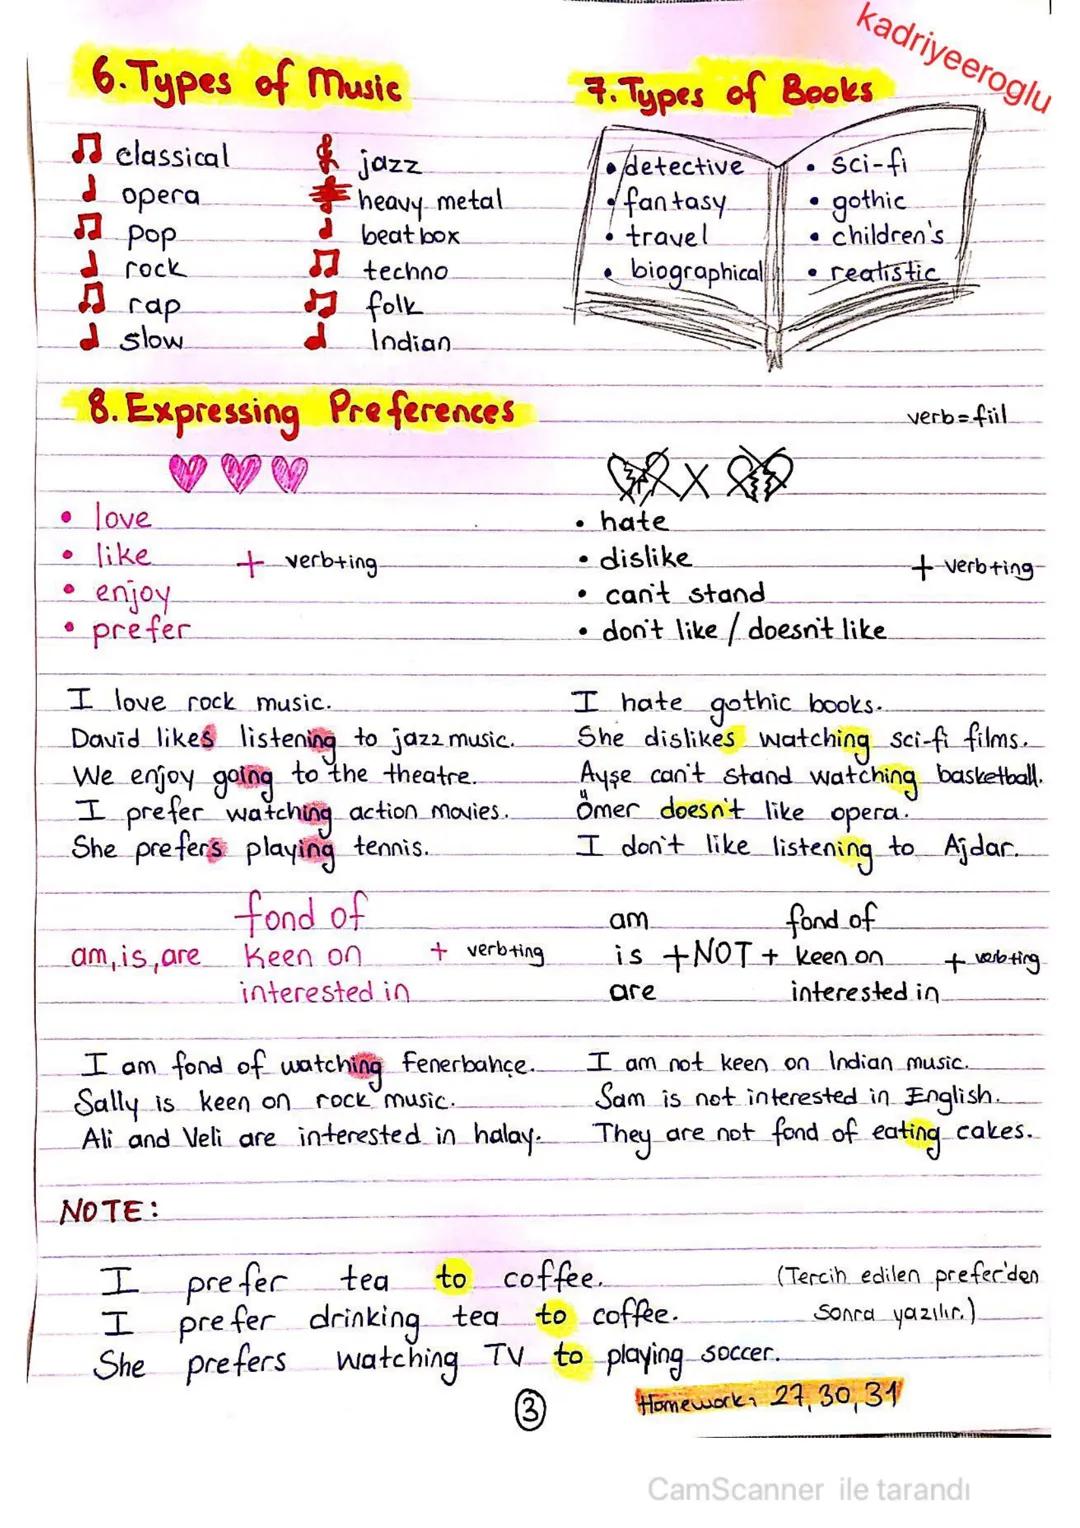 kadriyeeroglu
6. Types of Music
classical
opera
pop
rock
rap
slow
jazz
heavy metal
beatbox
techno
folk
Indian
7. Types of Books
• detective
• fantasy
• travel
• biographical
• sci-fi
• gothic
• children's
• realistic
8. Expressing Preferences
verb=fiil
• love
• like
• enjoy
• prefer
+ verb+ing
X
• hate
• dislike
• can't stand
• don't like / doesn't like
+ verb+ing
I love rock music.
David likes listening to jazz music.
We enjoy going to the theatre.
I prefer watching action movies.
She prefers playing tennis.
I hate gothic books.
She dislikes watching sci-fi films.
Ayşe can't stand watching basketball.
Ömer doesn't like opera.
I don't like listening to Ajdar.
fond of
am, is, are keen on + verb+ing
interested in
am fond of
is +NOT + keen on + verb+ing
are interested in
I am fond of watching Fenerbahçe.
Sally is keen on rock music.
Ali and Veli are interested in halay.
I am not keen on Indian music.
Sam is not interested in English.
They are not fond of eating cakes.
NOTE:
I prefer tea to coffee.
I prefer drinking tea to coffee.
She prefers watching TV to playing soccer.
(Tercih edilen prefer'den
sonra yazılır.)
3
Homework: 27, 30, 31
CamScanner ile tarandı